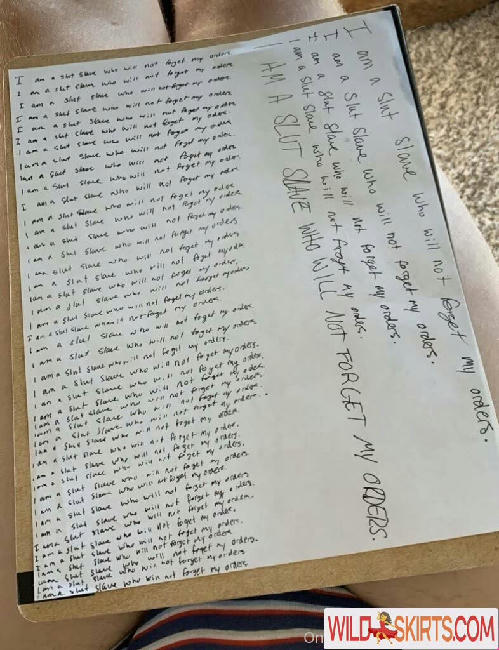 I am a slut slave who will not forget my orders
I am a slut slave who will not forget my orders
I am a slut slave who will not forget my orders
I am a slut slave who will not forget my orders.
I am a slut slave who will not forget my orders
I am a slut slave who will not forget my orders
I am a slut slave who will not forget my orders.
I am a slut slave who will not forget my orders.
I am a slut slave who will not forget my orders
I am a slut slave who will not forget my orders.
I am a slut slave who will not forget my orders
I am a slut slave who will not forget my orders
I am a slut slave who will not forget my orders.
I am a slut slave who will not forget my orders
I am a slut slave who will not forget my orders
I am a slut slave who will not forget my orders
I am a slut slave who will not forget my orders.
I am a slut slave who will not forget my orders
I am a slut slave who will not forget my orders.
I am a slut slave who will not forget my orders.
I am a slut slave who will not forget my orders
I am a slut slave who will not forget my orders.
I am a slut slave who will not forget my orders.
I am a slut slave who will not forget my orders.
I am a slut slave who will not forget my orders.
I am a slut slave who will not forget my orders.
I am a slut slave who will not forget my orders.
I am a slut slave who will not forget my orders.
I am a slut slave who will not forget my orders
I am a slut slave who will not forget my orders.
I am a slut slave who will not forget my orders.
I am a slut slave who will not forget my orders
I am a slut slave who will not forget my orders.
I am a slut slave who will not forget my orders.
I am a slut slave who will not forget my orders
I am a slut slave who will not forget my orders.
I am a slut slave who will not forget my orders.
I am a slut slave who will not forget my orders.
I am a slut slave who will not forget my orders.
I am a slut slave who will not forget my orders.
I am a slut slave who will not forget my orders
I am a slut slave who will not forget my orders.
I am a slut slave who will not forget my orders
I am a slut slave who will not forget my orders
I am a slut slave who will not forget my orders.
I am a slut slave who will not forget my orders.
I am a slut slave who will not forget my orders.
I am a slut slave who will not forget my orders.
I AM A SLUT SLAVE WHO WILL NOT FORGET MY ORDERS.
WILD SKIRTS.COM